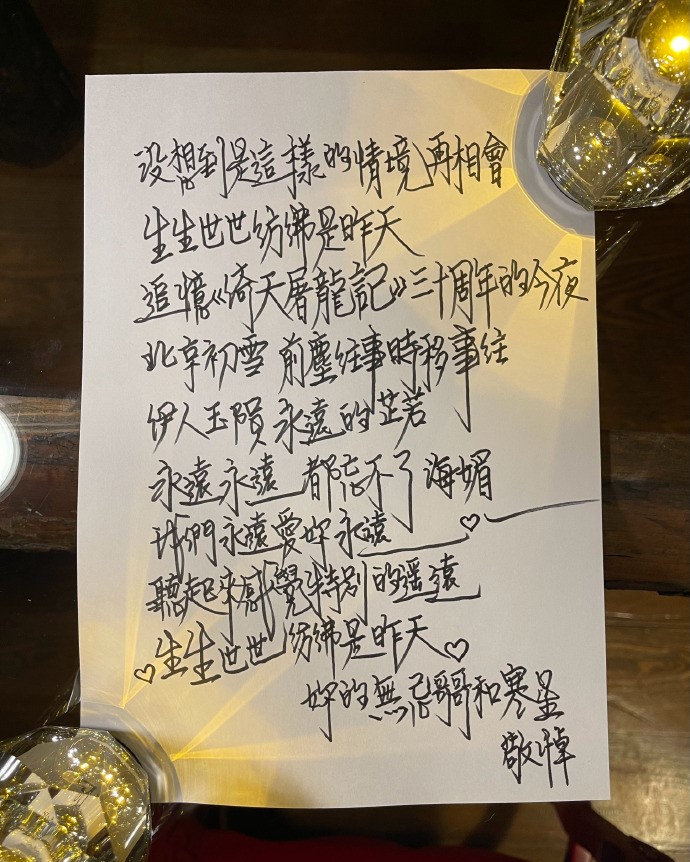 沒想到是這樣的情境再相會
生生世世彷彿是昨天
追憶《倚天屠龍記》三十周年的今夜
北京初雪 前塵往事時移事往
伊人玉隕 永遠的芷若
永遠永遠 都忘不了海媚
我們永遠愛妳永遠
聽起來感覺特別的遙遠
生生世世彷彿是昨天
妳的無忌哥哥和寒星
敬悼